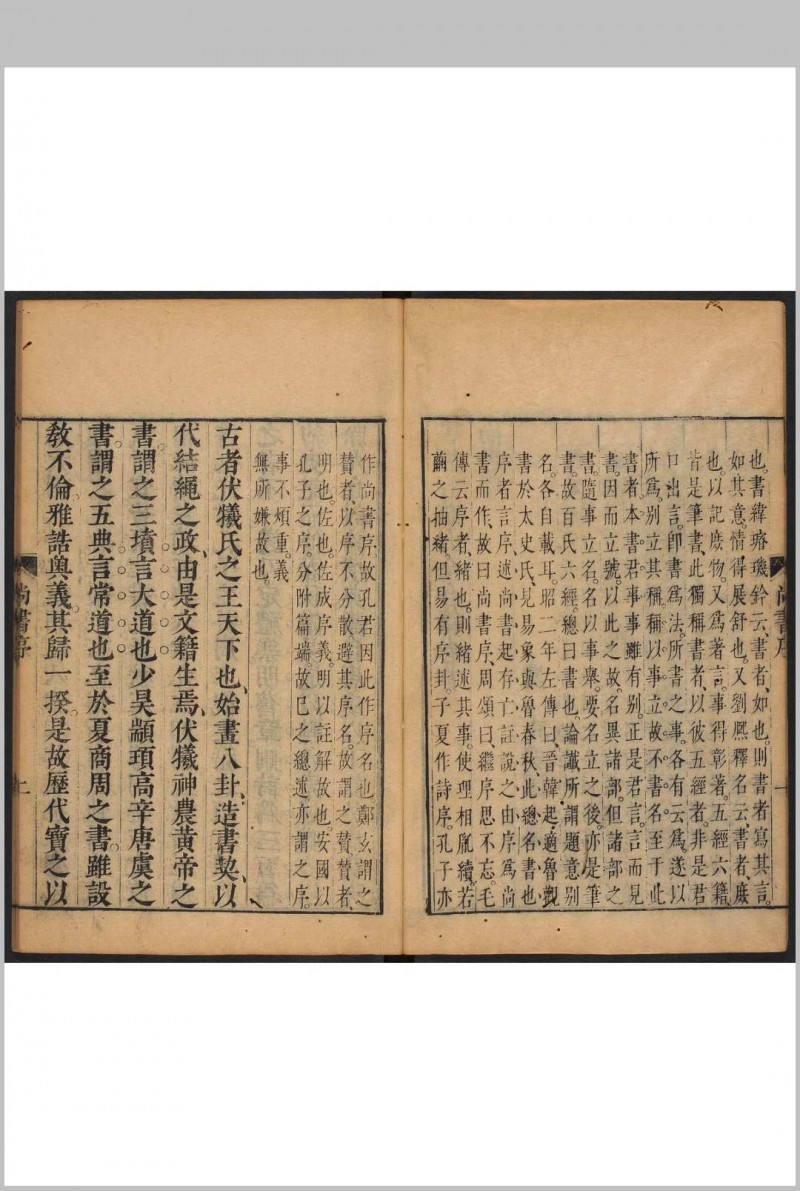 也。書緯璿璣鈐云、書者、如也。則書者寫其言。
如其意、情得展舒也。又劉熙釋名云、書者、庶
也。以記庶物。又爲著言。事得彰著。五經六籍、
皆是筆書、此獨稱書者、以彼五經者、非是君
口出言。卽書爲法。所書之事、各有云爲。遂以
所爲。別立其稱。稱以事立。故不書名。至于此
書者、本書君事。事雖有別。正是君言。言而見
書。因而立號。以此之故。名異諸部。但諸部之
書。隨事立名。名以事舉。要名立之後。亦是筆
書。故百氏六經。總曰書也。論讖所謂題意別
名。各自載耳。昭二年左傳曰、晉韓起、適魯觀
書於太史氏、見易象與魯春秋、此總名書也
序者、言序述尚書起存亡註說之由。序爲尚
書而作、故曰尚書序、周頌曰、繼序思不忘。毛
傳云序者、緒也。則緒述其事。使理相胤續。若
繭之抽緒。但易有序卦、子夏作詩序。孔子亦
尚書序
作尚書序、故孔君因此作序名也鄭玄謂之
贊者、以序不分散避其序名。故謂之贊贊者、
明也。佐也。佐成序義。明以註解故也。安國以
孔子之序。分附篇端故巳之總述亦謂之序。
事不煩重。義
無所嫌故也
古者伏犧氏之王天下也、始畫八卦、造書契、以
代結繩之政、由是文籍生焉、伏犧神農黃帝之
書。謂之三墳。言大道也少昊顓頊高辛唐虞之
書。謂之五典。言常道也至於夏商周之書。雖設
敎不倫。雅誥奧義。其歸一揆。是故歷代寶之以
尚書序